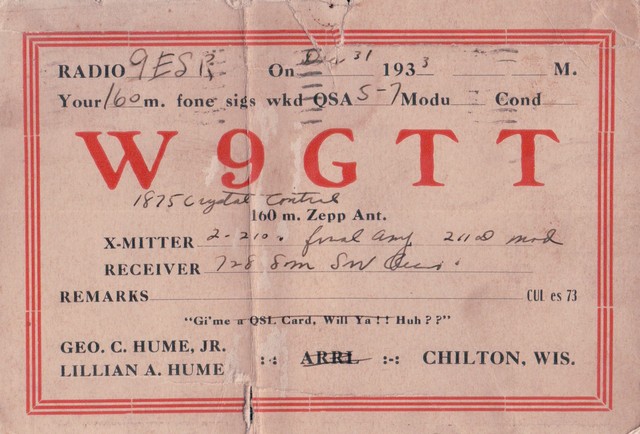 RADIO 9ESR On Dec 31 1933 M.
Your 160 m. fone sigs wkd QSA 5-7 Modu Cond
W9GTT
1875 Crystal Control
160 m. Zepp Ant.
X-MITTER 2-210. final amp mod
RECEIVER 728 SW
REMARKS CUL es 73
"Gi'me a QSL Card, Will Ya!! Huh??"
GEO. C. HUME, JR.
LILLIAN A. HUME :-: ARRL :-: CHILTON, WIS.